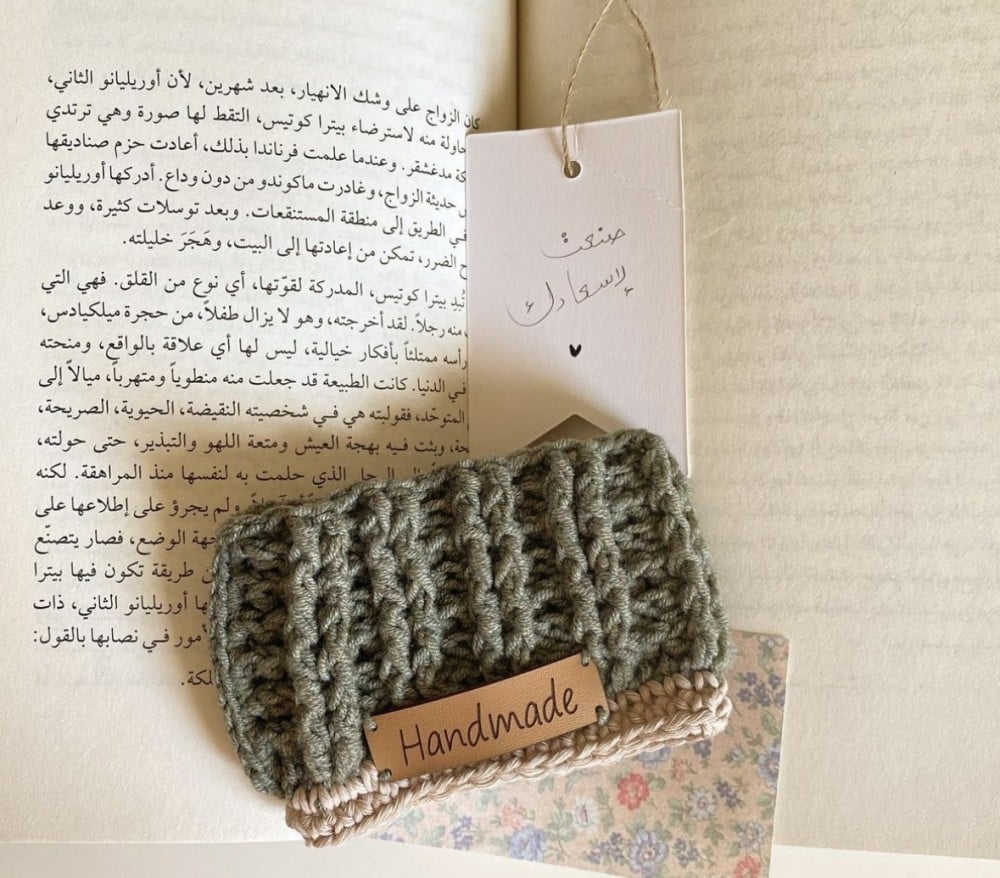 كان الزواج على وشك الانهيار، بعد شهرين، لأن أوريليانو الثاني،
حاولة منه لاسترضاء بيترا كوتيس، التقط لها صورة وهي ترتدي
مدغشقر. وعندما علمت فرناندا بذلك، أعادت حزم صناديقها
حديثة الزواج، وغادرت ماكوندو من دون وداع. أدركها أوريليانو
في الطريق إلى منطقة المستنقعات. وبعد توسلات كثيرة، ووعد
الضرر، تمكن من إعادتها إلى البيت، وهَجَرَ خليلته.
تُبدِ بيترا كوتيس، المدركة لقوّتها، أي نوع من القلق. فهي التي
منه رجلاً. لقد أخرجته، وهو لا يزال طفلاً، من حجرة ميلكيادس،
رأسه ممتلئاً بأفكار خيالية، ليس لها أي علاقة بالواقع، ومنحته
في الدنيا. كانت الطبيعة قد جعلت منه منطوياً ومتهرباً، ميالاً إلى
المتوحّد، فقولبته هي في شخصيته النقيضة، الحيوية، الصريحة،
وبثت فيه بهجة العيش ومتعة اللهو والتبذير، حتى حولته،
الذي حلمت به لنفسها منذ المراهقة. لكنه
ولم يجرؤ على إطلاعها على
الوضع، فصار يتصنّع
طريقة تكون فيها بيترا
أوريليانو الثاني، ذات
الأمور في نصابها بالقول:
صنعت
لإسعادك
Handmade